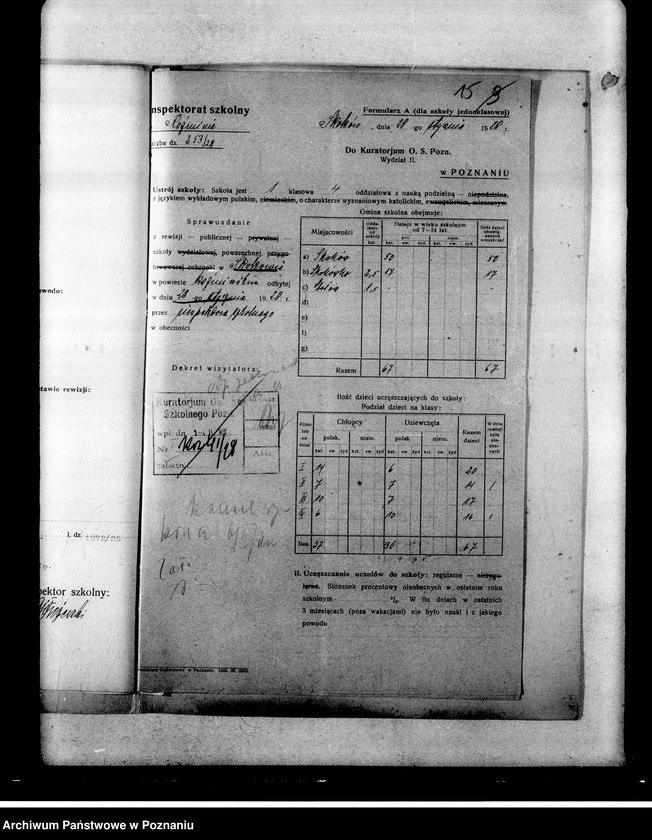 15
Inspektorat szkolny
Koźminie
Liczba dz. 253/28
Formularz A (dla szkoły jednoklasowej)
Skoków, dnia 28 -go stycznia 1928 r.
Do Kuratorjum O. S. Pozn.
Wydział II.
w POZNANIU
Ustrój szkoły: Szkoła jest 1 klasowa 4 oddziałowa z nauką podzielną — niepodzielną,
z językiem wykładowym polskim, niemieskim, o charakterze wyznaniowym katolickim, ewangelickim, mieszanym.
Sprawozdanie
z rewizji — publicznej — prywatnej —
szkoły wydziałowej, powszechnej, przygo-
towawczej ochronki w Skokowie
w powiecie koźmińskim odbytej
w dniu 28 go stycznia 1928 r.
przez inspektora szkolnego
w obecności
Dekret wizylatora:
Gmina szkolna obejmuje:
Miejscowości
Odda-
lenie
od
szkoły
km.
Dzieci w wieku szkolnym
od 7—14 lat.
pol. niem.
kat. ew. żyd. kat. ew. żyd.
Ilość dzieci
obowią-
zanych
uczęszczać
a) Skoków 50 50
b) Skokówko 2,5 17 17
c) 1,5 - -
d)
e)
f)
g)
Razem 67 67
Kuratorjum O.
Szkolnego Pozn.
wpł. dn.
Nr. 41/28
załączn.
Ilość dzieci uczęszczających do szkoły:
Podział dzieci na klasy:
Klasa
lub
od-
dział
Chłopcy
Dziewczęta
Razem
dzieci
W dniu
rewizji
było
nie-
obec-
nych
polak. niem. polak niem.
kat. ew. żyd kat. ew. żyd kat. ew. żyd kat. ew. żyd
I 14 6 20
II 7 7 14 1
III 10 7 17
IV 6 10 16 1
Raz. 37 30 67
II. Uczęszczanie uczniów do szkoły: regularne — niereg-
larne. Stosunek procentowy nieobecnych w ostatnim roku
szkolnym %. W ilu dniach w ostatnich
3 miesiącach (poza wakacjami) nie było nauki i z jakiego
powodu
owodu:
stawie rewizji:
l. dz. 1978/28
pektor szkolny:
Archiwum Państwowe w Poznaniu